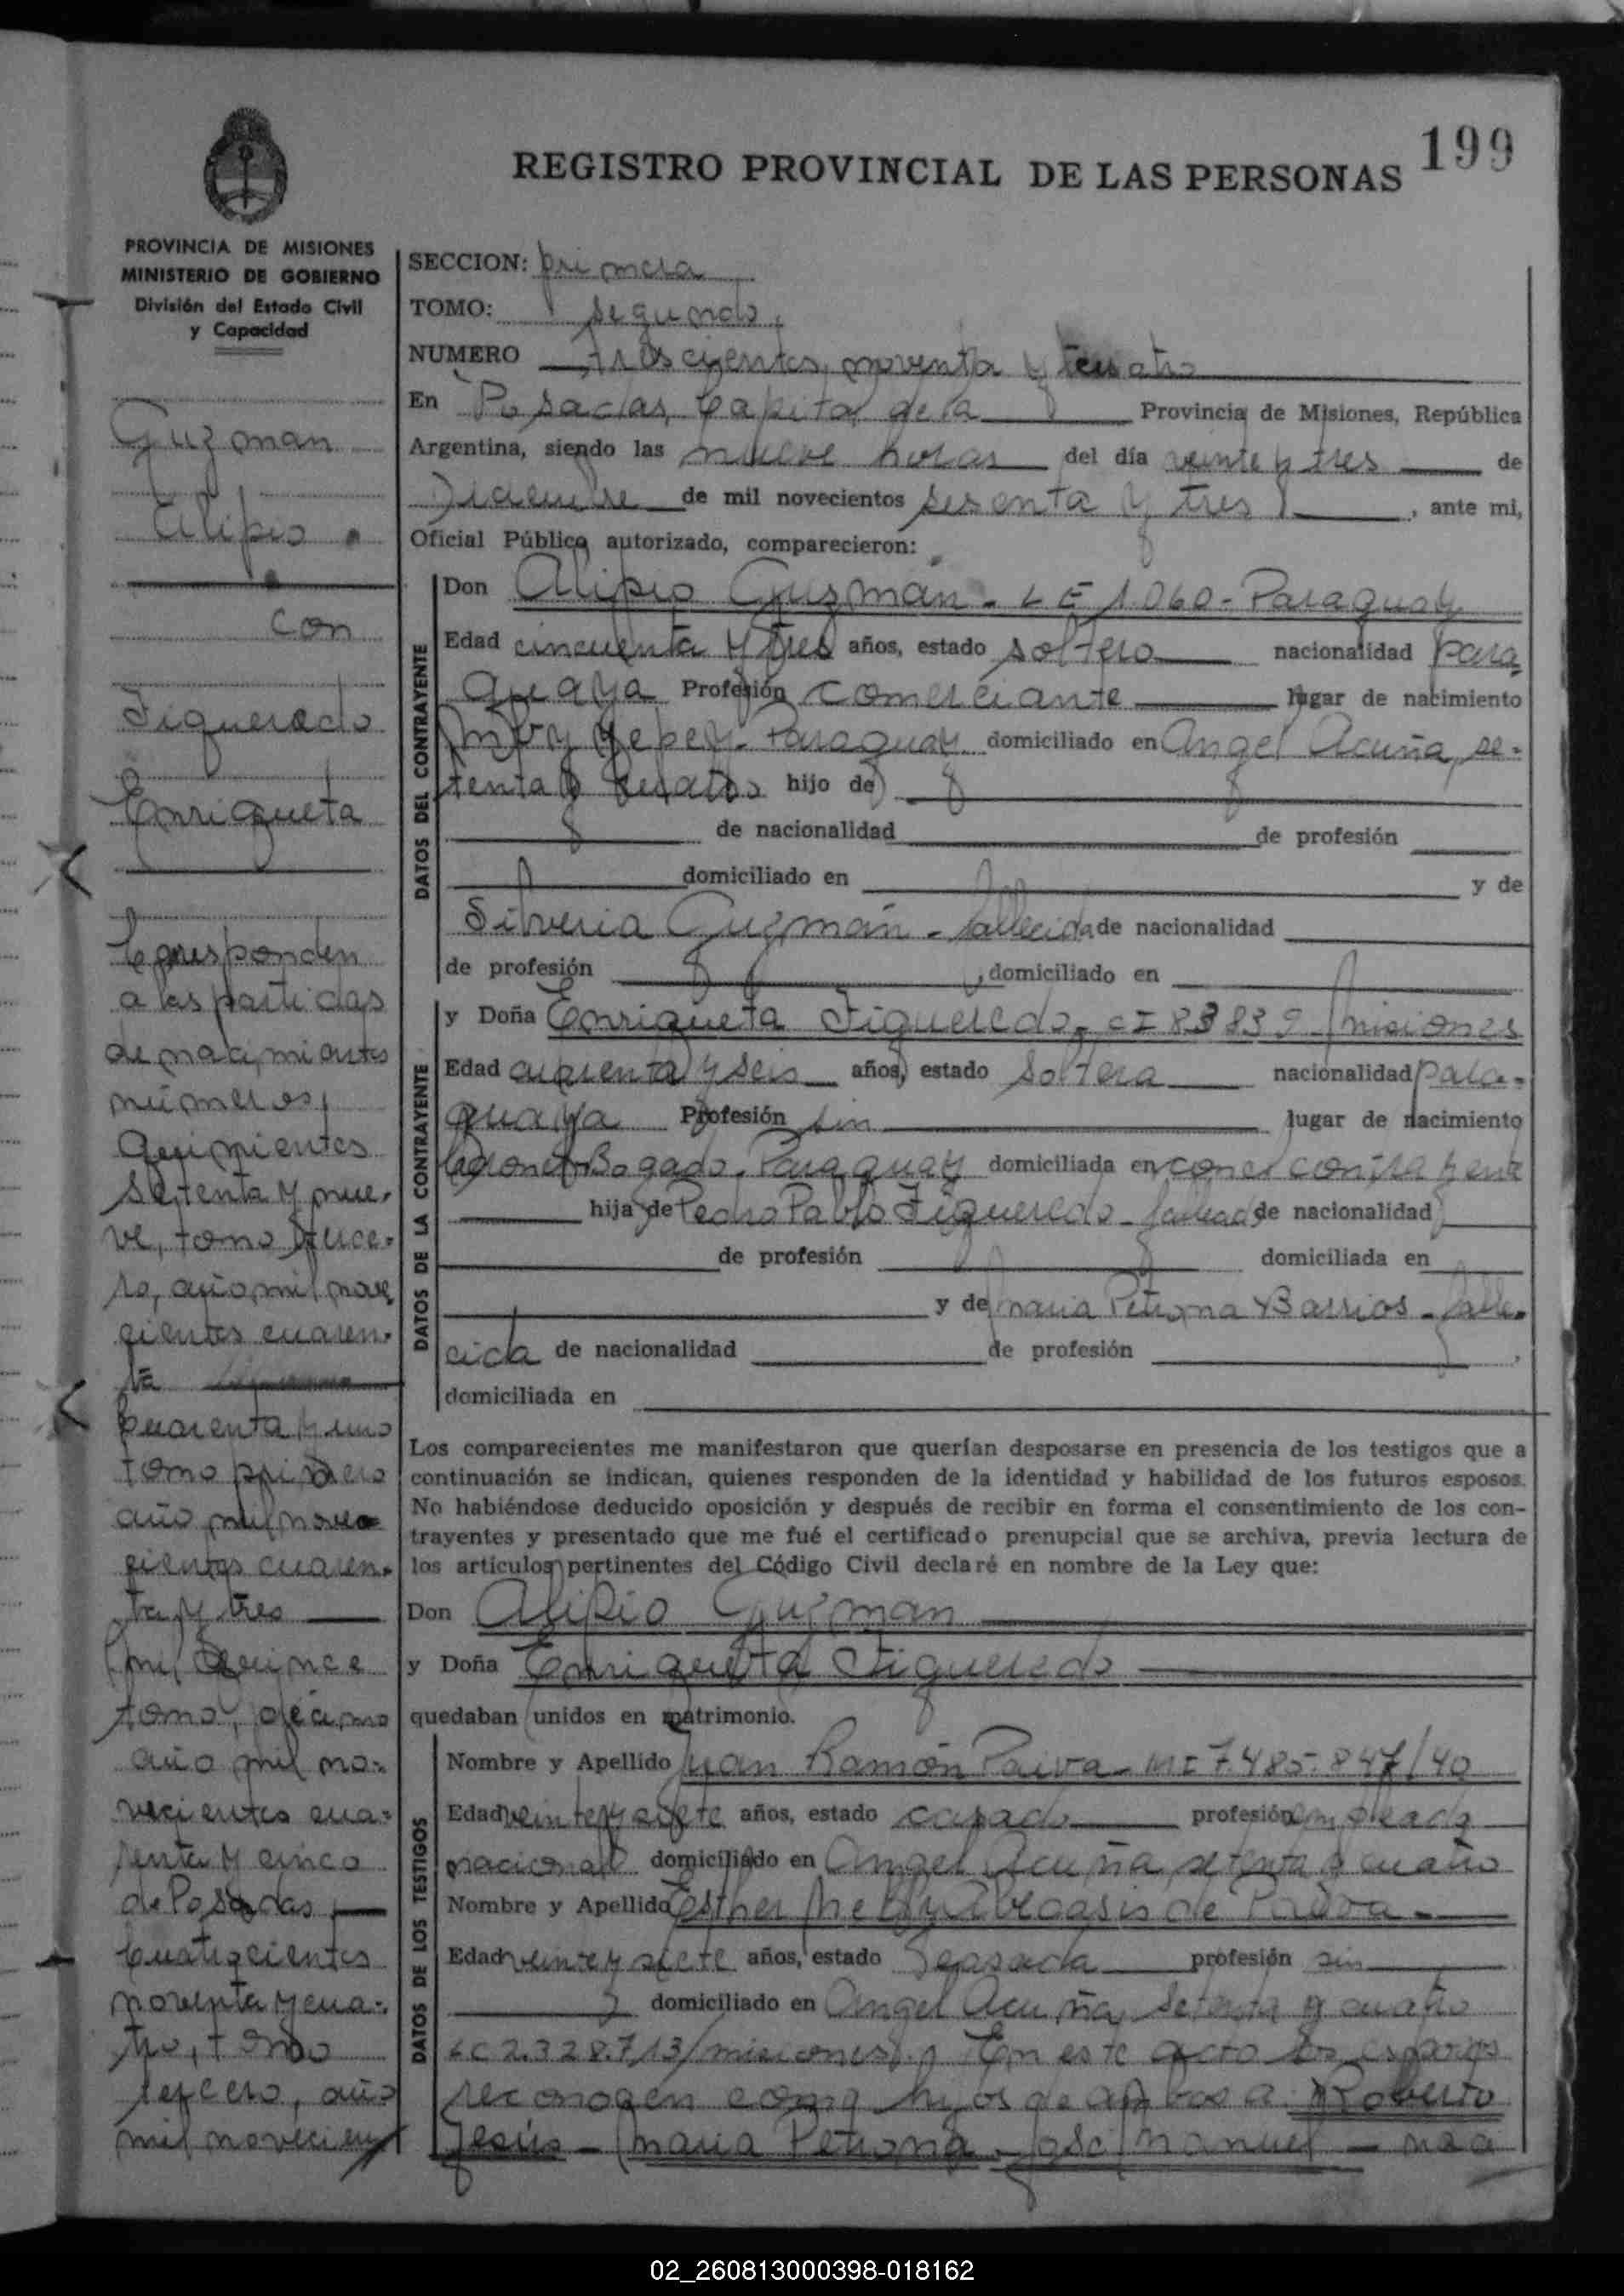 199
REGISTRO PROVINCIAL DE LAS PERSONAS
PROVINCIA DE MISIONES
MINISTERIO DE GOBIERNO
División del Estado Civil
y Capacidad
Guzman
Alipio
con
Figueredo
Enriqueta
Corresponden
a las partidas
de nacimientos
números,
quinientos
setenta y nue-
ve, tomo terce-
ro, año mil nove
cientos cuaren-
ta
Cuarenta y uno
tomo primero
año mil nove
cientos cuaren-
ta y tres
mil quince
tomo, décimo
año mil no-
vecientos cua-
renta y cinco
de Posadas
Cuatrocientos
noventa y cua-
tro, tomo
tercero, año
mil novecien
SECCION: primera
TOMO: segundo,
NUMERO trescientos, noventa y cuatro
En Posadas, Capital de la Provincia de Misiones, República
Argentina, siendo las nueve horas del día veinte y tres de
Diciembre de mil novecientos sesenta y tres, ante mi,
Oficial Público autorizado, comparecieron:
DATOS DEL CONTRAYENTE
Don Alipio Guzmán - LE 1.060 - Paraguay
Edad cincuenta y tres años, estado soltero nacionalidad para
guaya Profesión comerciante lugar de nacimiento
Paraguay domiciliado en Angel Acuña, se-
tenta y cuatro hijo de
de nacionalidad de profesión
domiciliado en y de
Silveria Guzmán - fallecida de nacionalidad
de profesión , domiciliado en
DATOS DE LA CONTRAYENTE
y Doña Enriqueta Figueredo - CI 83839 - Misiones
Edad cuarenta y seis años, estado soltera nacionalidad para-
guaya Profesión sin lugar de nacimiento
Coronel Bogado. Paraguay domiciliada en con el contrayente
hija de Pedro Pablo Figueredo - fallecido de nacionalidad
de profesión domiciliada en
y de Maria Petrona Barrios - falle-
cida de nacionalidad de profesión ,
domiciliada en
Los comparecientes me manifestaron que querían desposarse en presencia de los testigos que a
continuación se indican, quienes responden de la identidad y habilidad de los futuros esposos.
No habiéndose deducido oposición y después de recibir en forma el consentimiento de los con-
trayentes y presentado que me fué el certificado prenupcial que se archiva, previa lectura de
los artículos pertinentes del Código Civil declaré en nombre de la Ley que:
Don Alipio Guzman
y Doña Enriqueta Figueredo
quedaban unidos en matrimonio.
DATOS DE LOS TESTIGOS
Nombre y Apellido Juan Ramón Paiva - MI 7.485.847/40
Edad veinte y siete años, estado casado profesión empleado
nacional domiciliado en Angel Acuña, setenta y cuatro
Nombre y Apellido Esther de Paiva -
Edad veinte y siete años, estado casada profesión sin
domiciliado en Angel Acuña, setenta y cuatro
LC 2.328.713/misiones. En este acto los esposos
reconocen como hijos de ambos a: Roberto
Jesús - Maria Petrona - José Manuel - naci
02_260813000398-018162